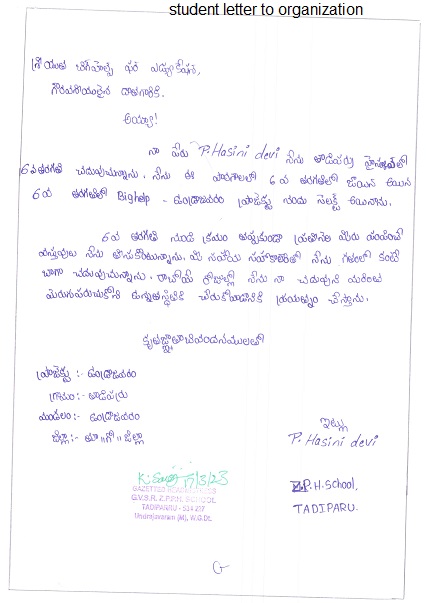 student letter to organization
శ్రీయుత బిగ్‌హెల్ప్ ఫర్ ఎడ్యుకేషన్,
గౌరవనీయులైన దాతగారికి.
అయ్యా!
నా పేరు P. Hasini devi నేను తాడిపర్రు హైస్కూల్ లో
6వ తరగతి చదువుచున్నాను. నేను ఈ పాఠశాలలో 6వ తరగతిలో జాయిన్ అయిన
6వ తరగతిలో Bighelp - ఉండ్రాజవరం ప్రాజెక్టు నందు సెలక్ట్ అయినాను.
6వ తరగతి నుండి క్రమం తప్పకుండా ప్రతినెల మీరు పంపించే
వస్తువులు నేను తీసుకొంటున్నాను. మీ సహాయ సహకారంతో నేను గతంలో కంటే
బాగా చదువుచున్నాను. రాబోయే రోజుల్లో నేను నా చదువుని మరింత
మెరుగుపరుచుకొని ఉన్నతస్థితికి చేరుకోవడానికి ప్రయత్నం చేస్తాను.
కృతజ్ఞతాభివందనములతో
ప్రాజెక్టు :- ఉండ్రాజవరం
గ్రామం :- తాడిపర్రు
మండలం :- ఉండ్రాజవరం
జిల్లా :- తూ॥గో॥ జిల్లా
ఇట్లు
P. Hasini devi
Z.P.H. School,
TADIPARU.
17/3/23
GAZETTED HEADMISTRESS
G.V.S.R. Z.P.P.H. SCHOOL
TADIPARRU - 534 237
Undrajavaram (M), W.G.Dt.